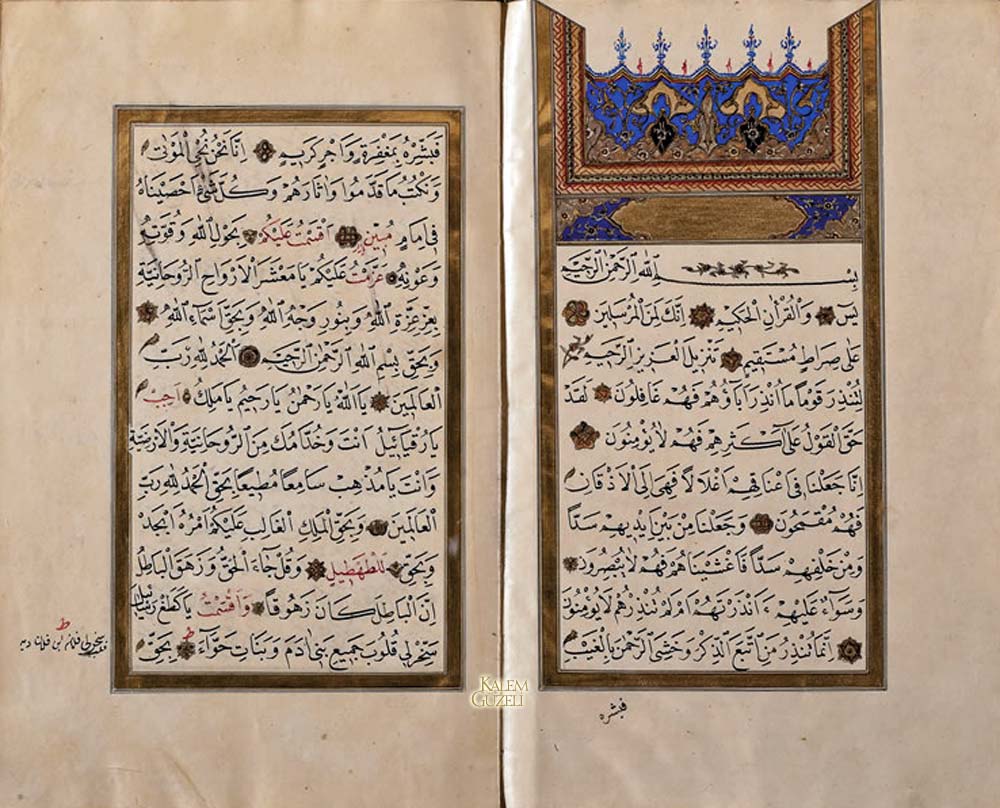 بِسْمِ اللّٰهِ الرَّحْمٰنِ الرَّحِيمِ
يٰسۤ وَالْقُرْاٰنِ الْحَكِيمِ اِنَّكَ لَمِنَ الْمُرْسَلِينَ
عَلٰى صِرَاطٍ مُسْتَقِيمٍ تَنْزِيلَ الْعَزِيزِ الرَّحِيمِ
لِتُنْذِرَ قَوْمًا مَا اُنْذِرَ اٰبَاؤُهُمْ فَهُمْ غَافِلُونَ لَقَدْ
حَقَّ الْقَوْلُ عَلٰى اَكْثَرِهِمْ فَهُمْ لَا يُؤْمِنُونَ
اِنَّا جَعَلْنَا فِى اَعْنَاقِهِمْ اَغْلَالًا فَهِىَ اِلَى الْاَذْقَانِ
فَهُمْ مُقْمَحُونَ وَجَعَلْنَا مِنْ بَيْنِ اَيْدِيهِمْ سَدًّا
وَمِنْ خَلْفِهِمْ سَدًّا فَاَغْشَيْنَاهُمْ فَهُمْ لَا يُبْصِرُونَ
وَسَوَاۤءٌ عَلَيْهِمْ ءَاَنْذَرْتَهُمْ اَمْ لَمْ تُنْذِرْهُمْ لَا يُؤْمِنُونَ
اِنَّمَا تُنْذِرُ مَنِ اتَّبَعَ الذِّكْرَ وَخَشِىَ الرَّحْمٰنَ بِالْغَيْبِ
فبشره
فَبَشِّرْهُ بِمَغْفِرَةٍ وَاَجْرٍ كَرِيمٍ اِنَّا نَحْنُ نُحْيِ الْمَوْتٰى
وَنَكْتُبُ مَا قَدَّمُوا وَاٰثَارَهُمْ وَكُلَّ شَىْءٍ اَحْصَيْنَاهُ
فِى اِمَامٍ مُبِينٍ اَقْسَمْتُ عَلَيْكُمْ بِحَوْلِ اللّٰهِ وَقُوَّتِهِ
وَعَوْنِهِ عَزَمْتُ عَلَيْكُمْ يَا مَعْشَرَ الْاَرْوَاحِ الرُّوحَانِيَّةِ
بِعِزِّ عِزَّةِ اللّٰهِ وَبِنُورِ وَجْهِ اللّٰهِ وَبِحَقِّ اَسْمَاۤءِ اللّٰهِ
وَبِحَقِّ بِسْمِ اللّٰهِ الرَّحْمٰنِ الرَّحِيمِ اَلْحَمْدُ لِلّٰهِ رَبِّ
الْعَالَمِينَ يَا اَللّٰهُ يَا رَحْمٰنُ يَا رَحِيمُ يَا مَلِكُ اَجِبْ
يَا رُقْيَائِيلُ اَنْتَ وَخُدَّامُكَ مِنَ الرُّوحَانِيَّةِ وَالْاَرْضِيَّةِ
وَاَنْتَ يَا مُذْهِبُ سَامِعًا مُطِيعًا بِحَقِّ الْحَمْدُ لِلّٰهِ رَبِّ
الْعَالَمِينَ وَبِحَقِّ الْمَلِكِ الْغَالِبِ عَلَيْكُمْ اَمْرُهُ اَبْجَدْ
وَبِحَقِّ لَلْطَهْطِيلٍ وَقُلْ جَاۤءَ الْحَقُّ وَزَهَقَ الْبَاطِلُ
اِنَّ الْبَاطِلَ كَانَ زَهُوقًا وَاَقْسَمْتُ
سَخِّرْ لِى قُلُوبَ جَمِيعِ بَنِى اٰدَمَ وَبَنَاتِ حَوَّاۤءَ بِحَقِّ
فلان ابن فلانا
KALEM
GÜZELİ